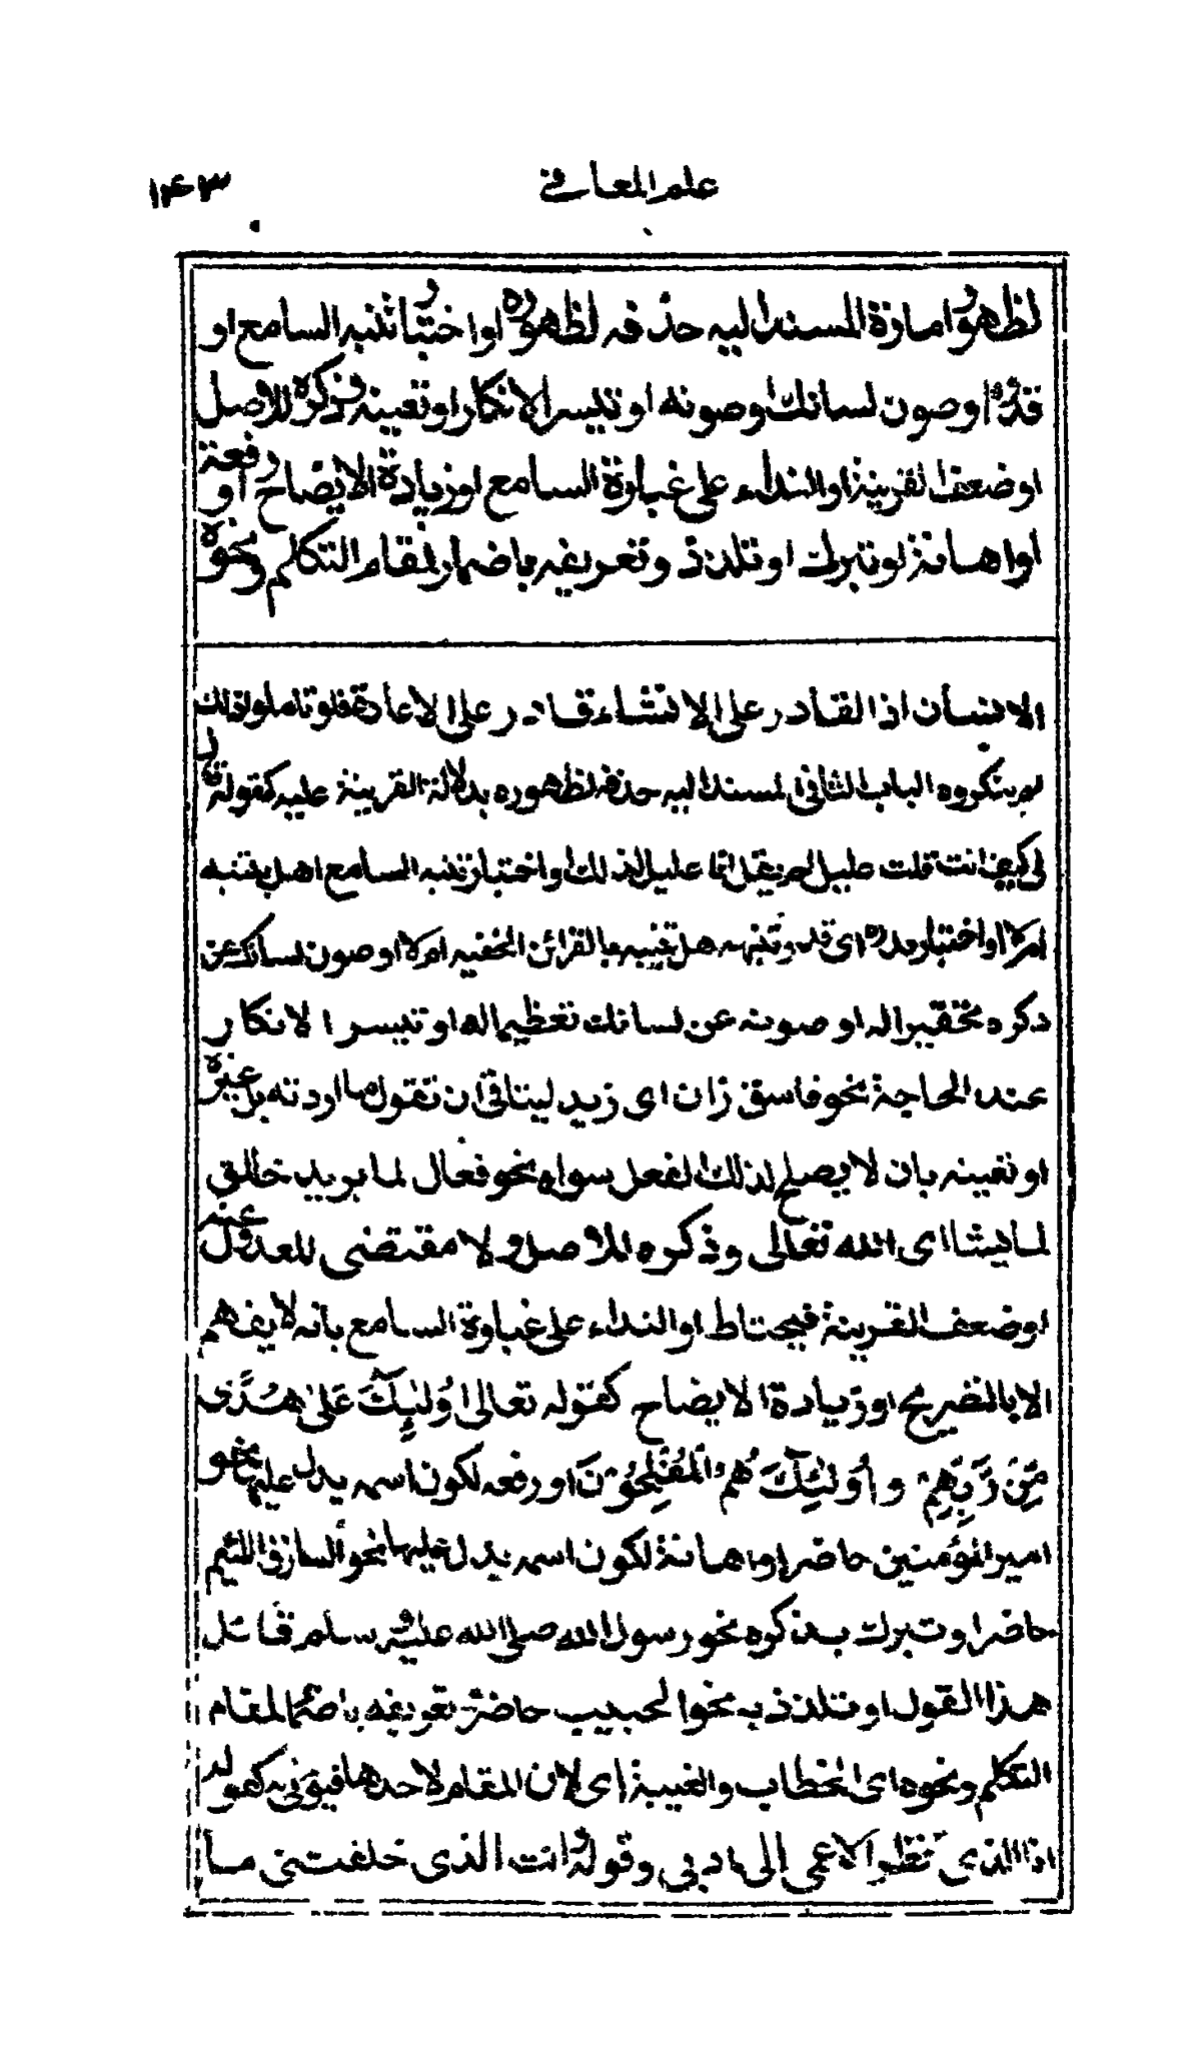 علم المعاني
١٤٣
لظهور امارة المسند اليه حذفه لظهوره او اختبار تنبه السامع او
قدره او صون لسانك او صونه او تيسر الانكار او تعينه وذكره للاصل
او ضعف القرينة او النداء على غباوة السامع او زيادة الايضاح او رفعة
او اهانة او تبرك او تلذذ وتعريفه باضمار لمقام التكلم ونحوه
الانسان اذ القادر على الانشاء قادر على الاعادة فلو تاملوا ذلك
لم ينكروه الباب الثاني المسند اليه حذفه لظهوره بدلالة القرينة عليه كقوله قال
لي كيف انت قلت عليل لم يقل انا عليل لذلك او اختبار تنبه السامع اهل يتنبه
ام لا او اختبار قدره اي قدر تنبهه هل يتنبه بالقرائن الخفيه ام لا او صون لسانك عن
ذكره تحقيرا له او صونه عن لسانك تعظيما له او تيسر الانكار
عند الحاجة نحو فاسق زان اي زيد ليتاتى ان تقول ما اردته بل غيره
او تعينه بان لا يصلح لذلك الفعل سواه نحو فعال لما يريد خالق
لما يشا اى الله تعالى وذكره للاصل ولا مقتضى للعدول عنه
او ضعف القرينة فيحتاط او النداء على غباوة السامع بانه لا يفهم
الا بالتصريح او زيادة الايضاح كقوله تعالى اُولٰئِكَ عَلىٰ هُدًى
مِّنْ رَّبِّهِمْ وأُولٰئِكَ هُمُ الْمُفْلِحُوْنَ او رفعه لكون اسمه يدل عليه نحو
امير المؤمنين حاضر او اهانة لكون اسمه يدل عليها نحو السارق اللئيم
حاضر او تبرك بذكره نحو رسول الله صلى الله عليه وسلم قائل
هذا القول او تلذذ به نحو الحبيب حاضر وتعريفه باضمار لمقام
التكلم ونحوه اى الخطاب والغيبة اى لان المقام لاحدها فيؤتى به كقوله
انا الذى نظر الاعمى الى ادبي وقوله وانت الذى خلفتنى ما